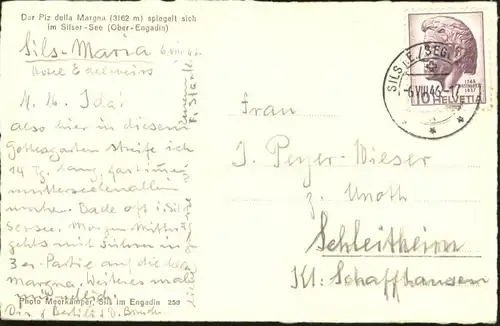 Der Piz della Margna (3162 m) spiegelt sich
im Silser-See (Ober-Engadin)
Sils-Maria 6.VIII.46
Hotel Edelweiss
M. lb. Ida!
also hier in diesem
Gottesgarten streife ich
14 Tg. lang, fast immer
mutterseelenallein
umher. Bade oft i. Silser-
see. Morgen Mittwoch
gehts mit Führer in
3er Partie auf die
Margna. Weiteres mal
Photo Meerkämper, Sils im Engadin 258
SILS I.E./SEGL
6.VIII.46-17
10 HELVETIA
Frau
J. Peyer-Wieser
z. Unoth
Schleitheim
Kt. Schaffhausen